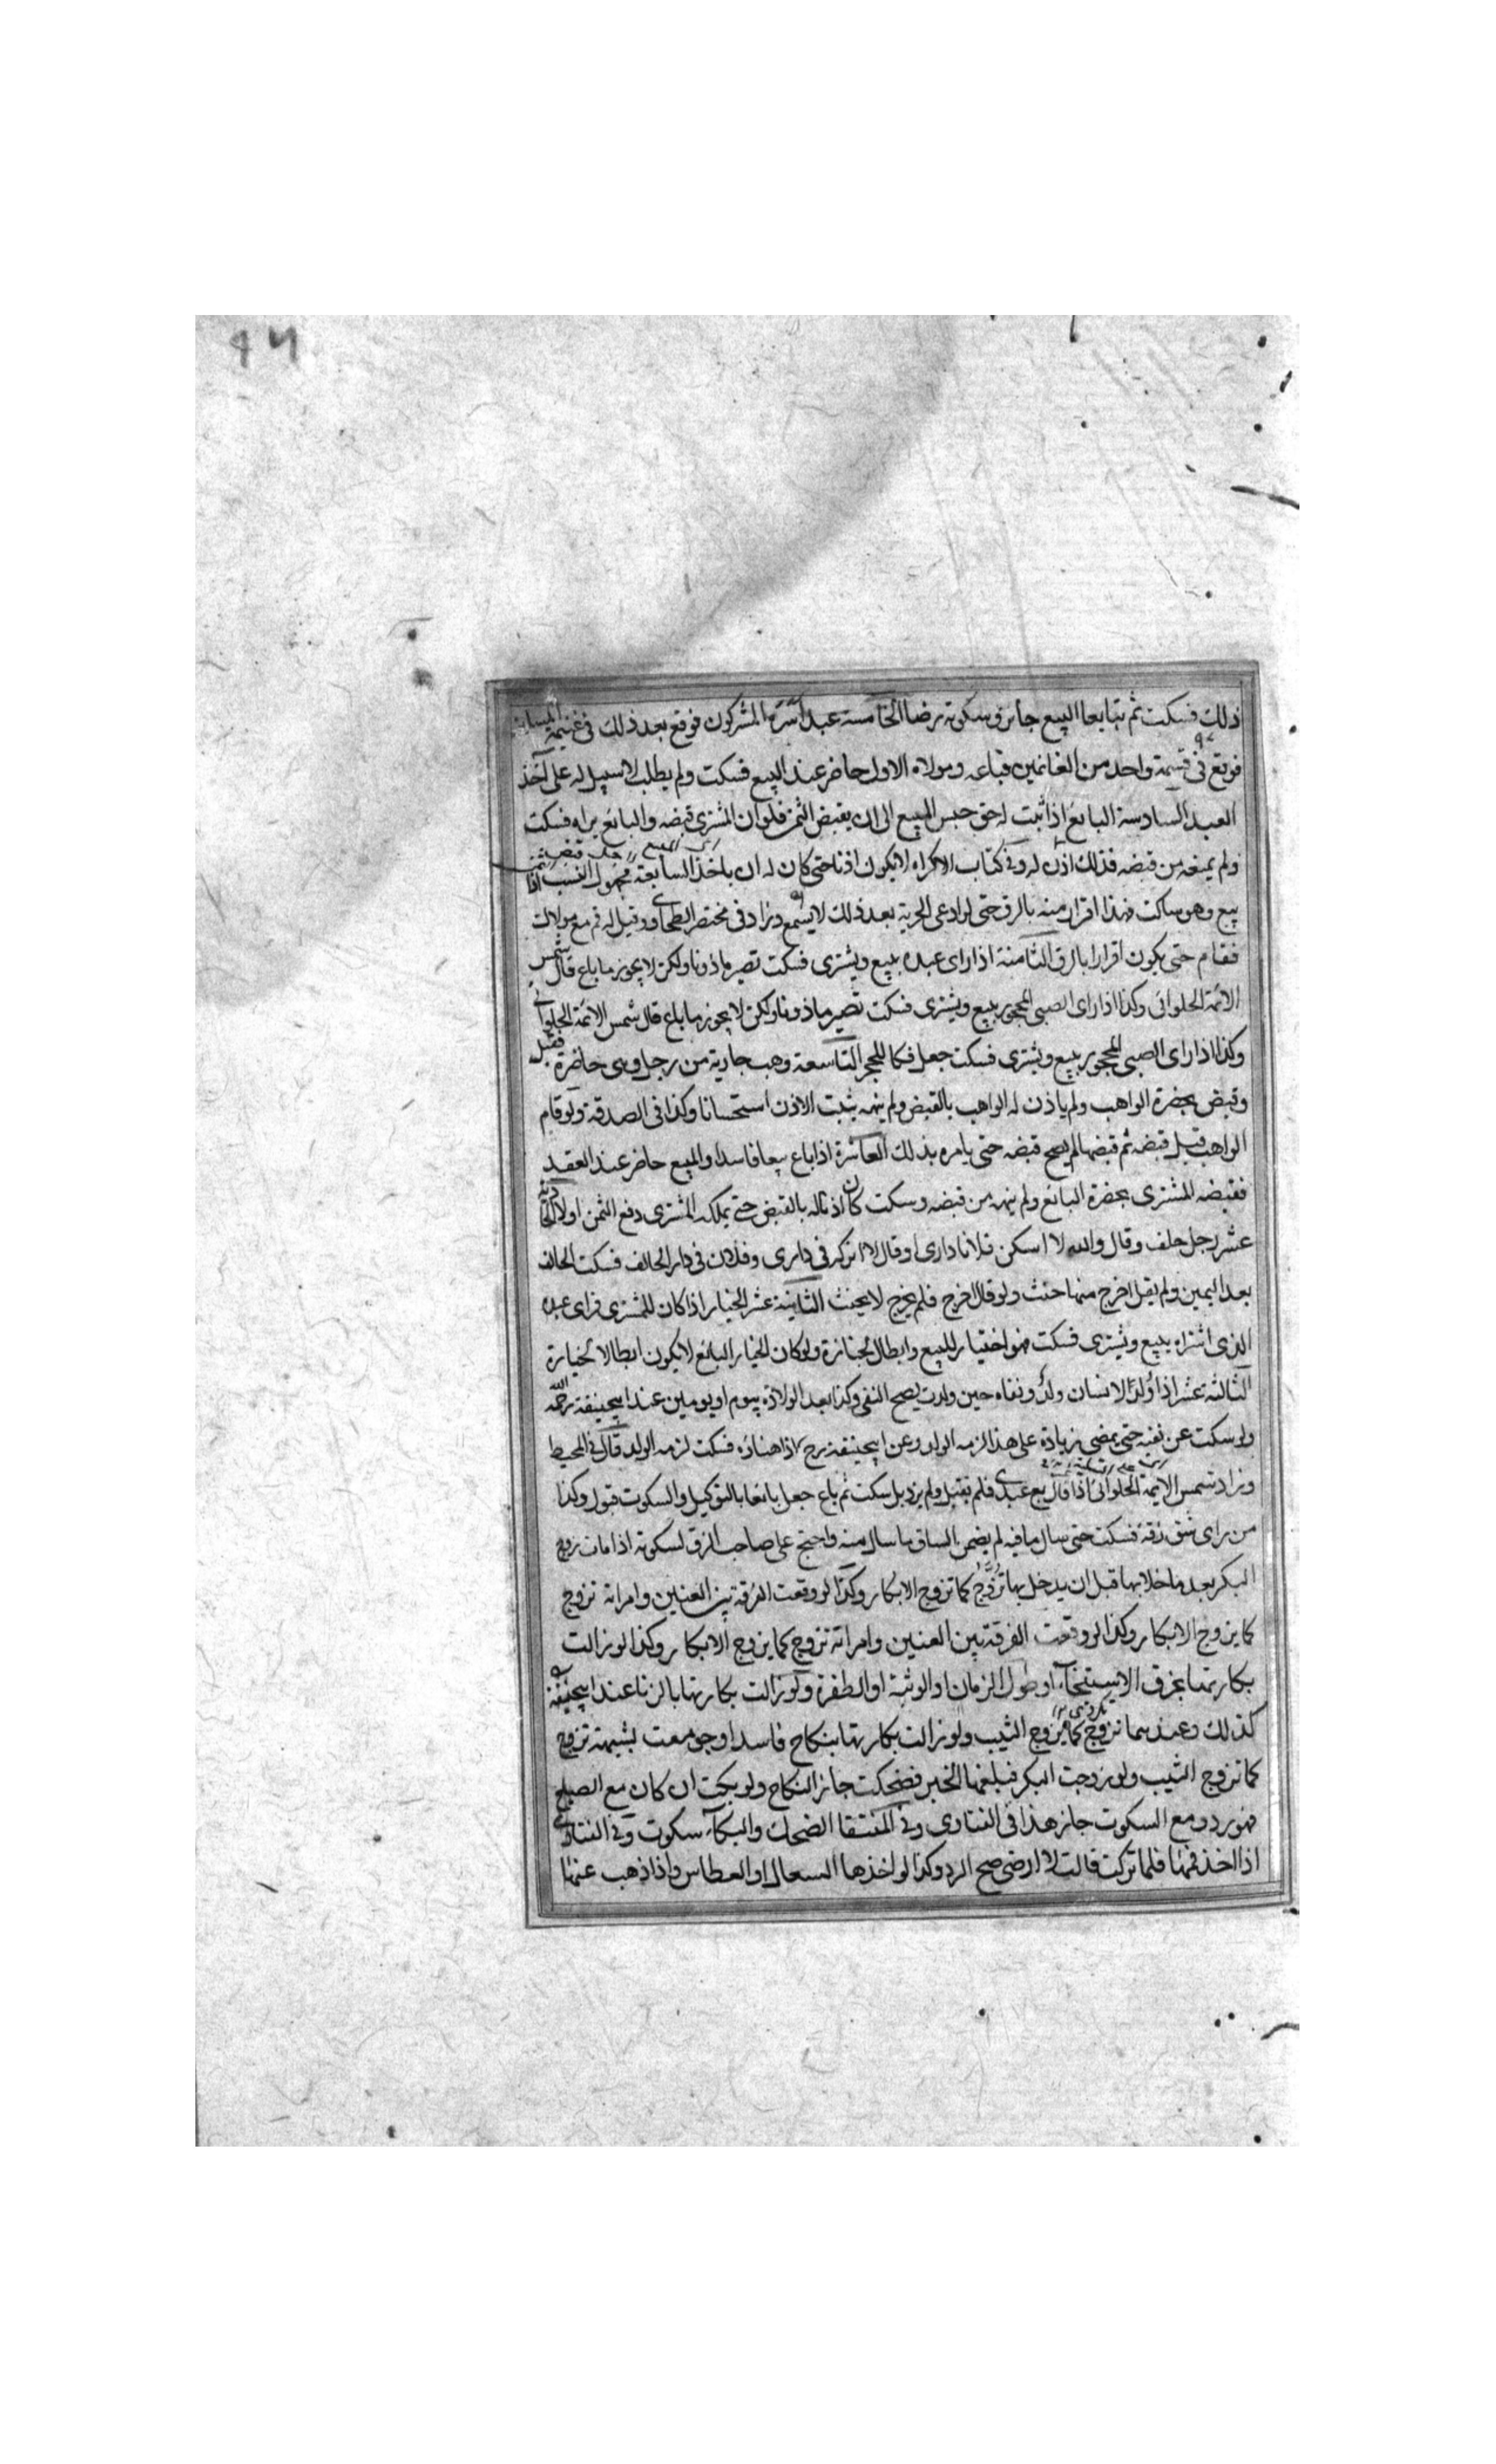 ذلك فسكت ثم تبايعا البيع جايز وسكوته رضا الخامسة عبد اسره المشركون فوقع بعد ذلك فى غنيمة المسلمين
فوقع فى قسمة واحد من الغانمين فباعه ومولاه الاول حاضر عند البيع فسكت ولم يطلب لا سبيل له على اخذ
العبد السادسة البائع اذا ثبت له حق حبس المبيع الى ان يقبض الثمن فلو ان المشترى قبضه والبائع يراه فسكت
ولم يمنعه من قبضه فذلك اذن له وفى كتاب الاكراه لا يكون اذنا حتى كان له ان ياخذ السابعة مجهول النسب اذا
بيع وهو ساكت فهذا اقرار منه بالرق حتى لو ادعى الحرية بعد ذلك لا يسمع وزاد فى مختصر الطحاوى وقيل له قم مع مولاك
فقام حتى يكون اقرارا بالرق الثامنة اذا راى عبده يبيع ويشترى فسكت تصير ماذونا ولكن لا يجوز ما باع قال شمس
الائمة الحلوائى وكذا اذا راى الصبى المحجور يبيع ويشترى فسكت تصير ماذونا ولكن لا يجوز ما باع قال شمس الائمة الحلوانى
وكذا اذا راى الصبى المحجور يبيع ويشترى فسكت جعل فكا للحجر التاسعة وهب جارية من رجل وهى حاضرة فقبل
وقبض بحضرة الواهب ولم ياذن له الواهب بالقبض ولم ينهه يثبت الاذن استحسانا وكذا فى الصدقة ولو قام
الواهب قبل قبضه ثم قبضها لم يصح قبضه حتى يامره بذلك العاشرة اذا باع بيعا فاسدا والمبيع حاضر عند العقد
فقبضه المشترى بحضرة البائع ولم ينهه من قبضه وسكت كان اذنا له بالقبض حتى يملكه المشترى دفع الثمن اولا الحادية
عشر رجل حلف وقال والله لا اسكن فلانا دارى او قال لا اتركه فى دارى وفلان فى دار الحالف فسكت الحالف
بعد اليمين ولم يقل اخرج منها حنث ولو قال اخرج فلم يخرج لا يحنث الثانية عشر الخيار اذا كان للمشترى فراى عبده
الذى اشتراه يبيع ويشترى فسكت فهو اختيار للبيع وابطال لخيازة ولو كان الخيار للبائع لا يكون ابطالا لخيارة
الثالثة عشر اذا وُلد لانسان ولد ونفاه حين ولدت يصح النفى وكذا بعد الولادة بيوم او يومين عند ابيحنيفة رحمه الله
ولو سكت عن نفيه حتى يمضى زيادة على هذا لزمه الولد وعن ابيحنيفة رح اذا هناؤه فسكت لزمه الولد قال فى المحيط
وزاد شمس الايمة الحلوائى اذا قال بع عبدى فلم يقبل ولم يرد بل سكت ثم باع جعل بائعا بالتوكيل والسكوت قبول وكذا
من راى شق زقه فسكت حتى سال ما فيه لم يضمن الساق ما سال منه واحتج على صاحب الزق لسكوته اذا مات زوج
البكر بعد ما خلا بها قبل ان يدخل بها تزوج كما تزوج الابكار وكذا لو وقعت الفرقة بين العنين وامراته تزوج
كما يزوج الابكار وكذا لو وقعت الفرقة بين العنين وامراته تزوج كما يزوج الابكار وكذا لو زالت
بكارتها بخرق الاستنجاء او طول الزمان او الوثبة او الطفرة ولو زالت بكارتها بالزنا عند ابيحنيفة
كذلك وعندهما تزوج كما يزوج الثيب ولو زالت بكارتها بنكاح فاسد او جومعت بشبهة تزوج
كما تزوج الثيب ولو زوجت البكر فبلغها الخبر فضحكت جاز النكاح ولو بكت ان كان مع الصياح
فهو رد ومع السكوت جاز هذا فى الفتاوى وفى المنتقا الضحك والبكاء سكوت وفى الفتاوى
اذا اخذ فمها فلما تركت قالت لا ارضى صح الرد وكذا لو اخذها السعال او العطاس واذا ذهب عنها